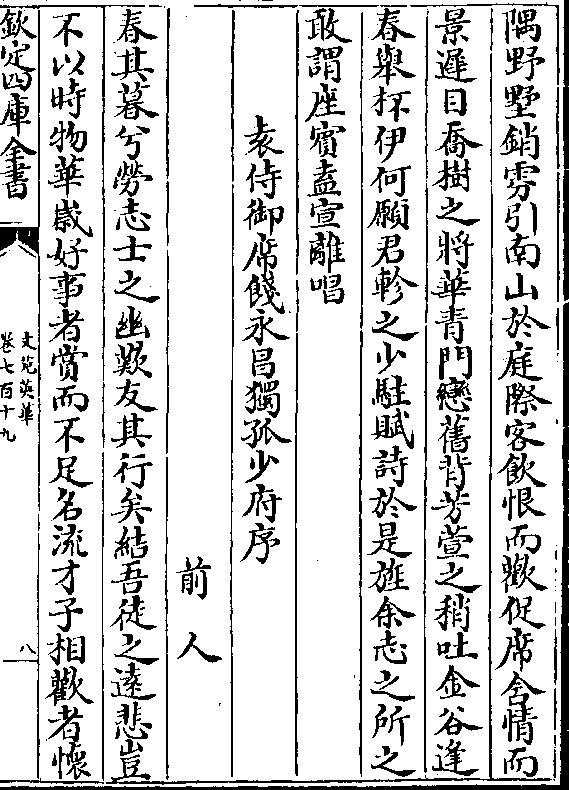 隅野墅銷雰引南山於庭際客飲恨而歡促席含情而
景遲日喬樹之將華青門戀舊背芳萱之稍吐金谷逢
春舉杯伊何願君軫之少駐賦詩於是旌余志之所之
敢謂座賓盍宣離唱
袁侍御席餞永昌獨孤少府序
前人
春其暮兮勞志士之幽歎友其行矣結吾徒之遠悲豈
不以時物華歲好事者賞而不足名流才子相歡者懷
欽定四庫全書
文苑英華
卷七百十九
八